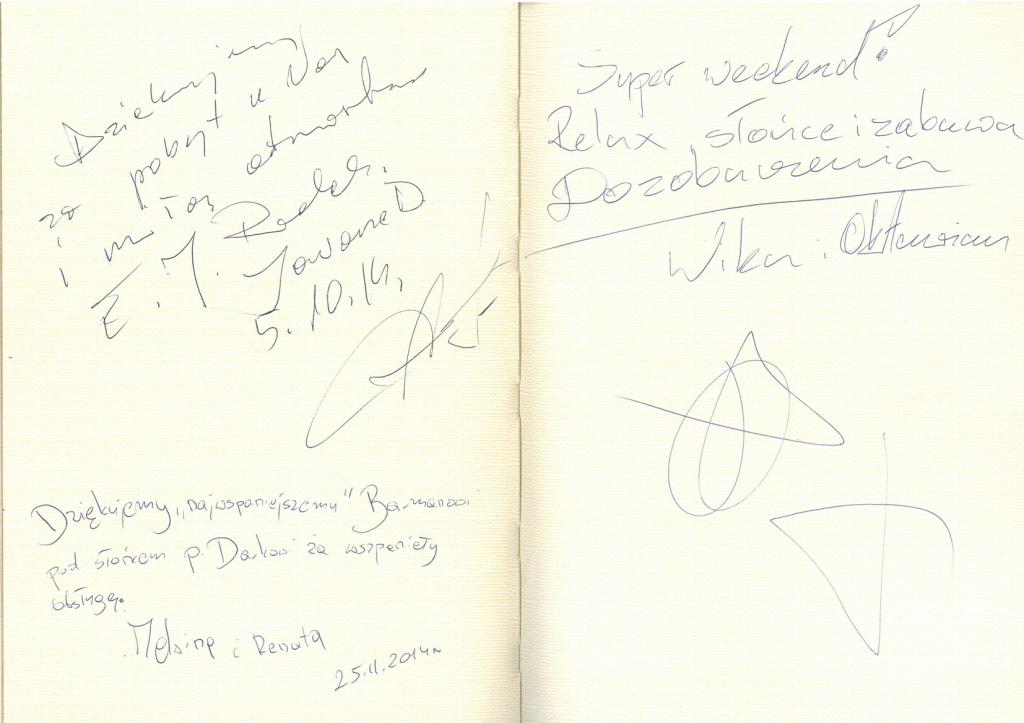 Dziękujemy
za pobyt u Was
i miłą
E. J. Radek.
5.10.14.
Dziękujemy „najwspanialszemu" Barmanowi
pod słońcem p. Darkowi za wspaniały
obsługę.
i Renata
25.11.2014r
Super weekend!
Relax, słońce i zabawa
Do zobaczenia
Wika i Oktawian